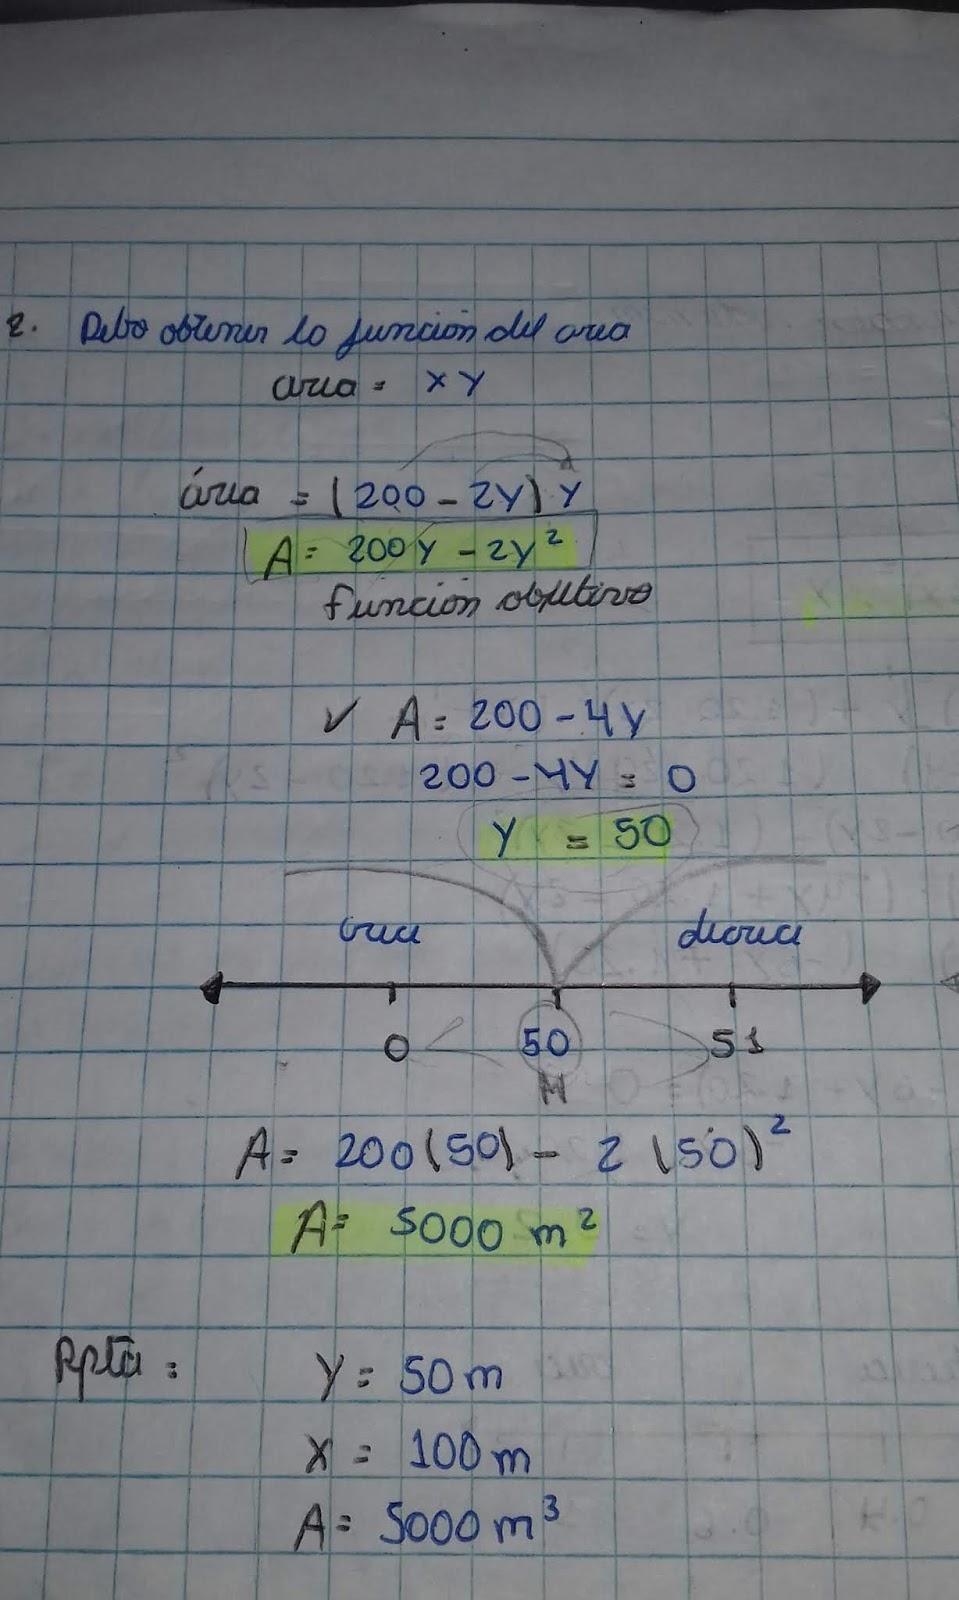 2. Debo obtener la función del area
area = x y
área = (200 - 2y) y
A = 200y - 2y²
función objetivo
✓ A = 200 - 4y
200 - 4y = 0
y = 50
crece decrece
0 50 51
M
A = 200(50) - 2(50)²
A = 5000 m²
Rpta: y = 50 m
x = 100 m
A = 5000 m³